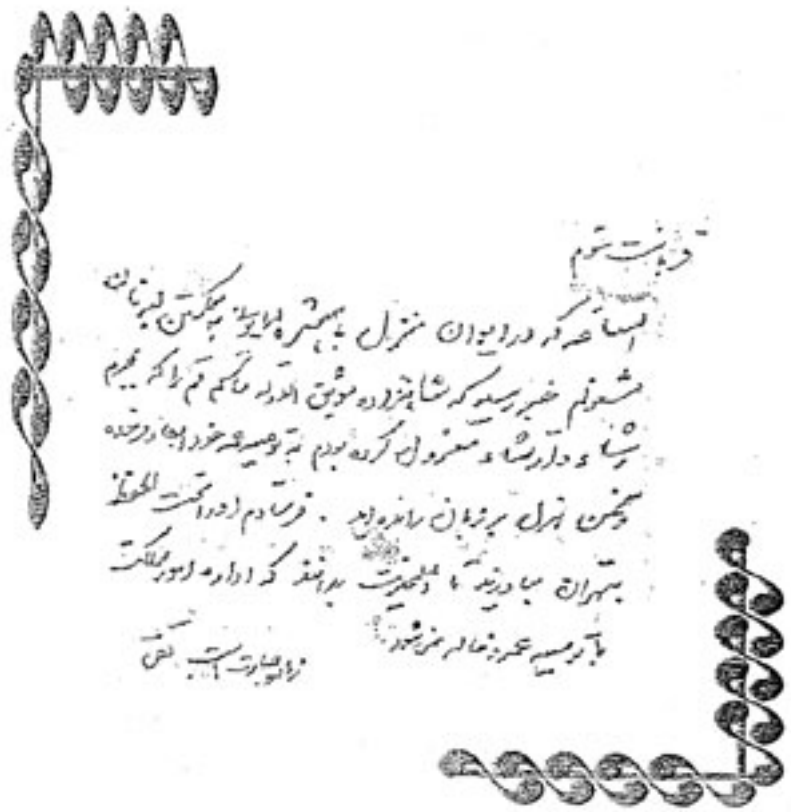 قربانت شوم
الساعه که در ایوان منزل با همشیره همایونی به شکستن لبه نان
مشغولم خبر رسید که شاهزاده موثق الدوله حاکم قم را که بجرم
رشاء و ارتشاء معزول کرده بودم به توصیه عمه خود ابقا فرموده
و سخن هزل بر زبان رانده‌اید . فرستادم او را تحت الحفظ
بتهران بیاورند تا اعلیحضرت بدانند که اداره امور مملکت
با توصیه عمه و خاله نمی‌شود.
زیاده جسارت است تقی